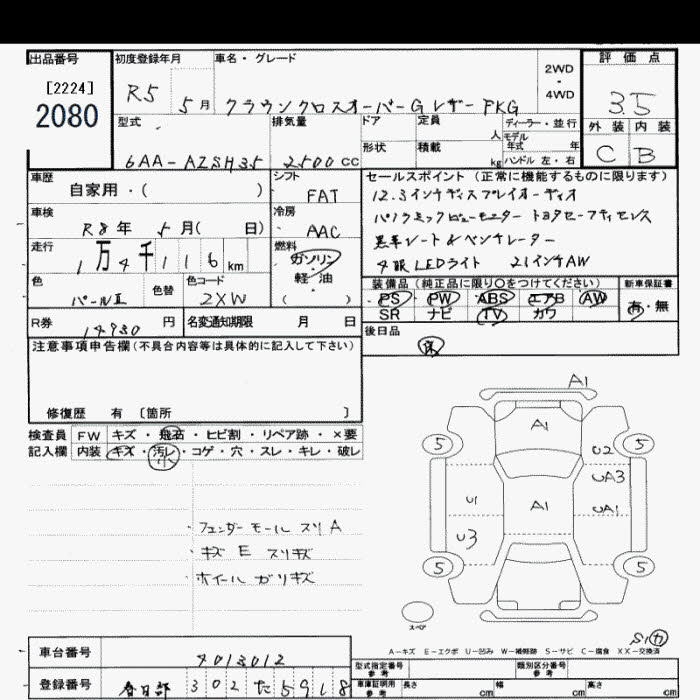 出品番号
[2224]
2080
初度登録年月
R5 5月
車名・グレード
クラウンクロスオーバーG レザーPKG
2WD
・
4WD
評価点
3.5
外装 内装
C B
型式
6AA-AZSH35
排気量
2500cc
ドア
形状
定員
人
積載
kg
ディーラー・並行
モデル
年式 年
ハンドル 左・右
車歴
自家用・( )
シフト
FAT
車検
R8年 5月( 日)
冷房
AAC
走行
1万4千116km
燃料
ガソリン
・
軽・油
( )
色
パールⅡ
色替
色コード
2XW
R券
14980円
名変通知期限 月 日
セールスポイント(正常に機能するものに限ります)
12.3インチディスプレイオーディオ
パノラミックビューモニター トヨタセーフティセンス
黒革シート&ベンチレーター
4眼LEDライト 21インチAW
装備品(純正品に限り○をつけてください)
PS PW ABS エアB AW
SR ナビ TV カワ
新車保証書
有・無
後日品
保
注意事項申告欄(不具合内容等は具体的に記入して下さい)
修復歴 有 〔箇所 〕
検査員
記入欄
FW キズ・飛石・ヒビ割・リペア跡・×要
内装 キズ・汚レ・コゲ・穴・スレ・キレ・破レ
小
・フェンダーモール スリA
・キズ E スリキズ
・ホイール ガリキズ
A1
A1
5 5
U2
UA3
U1
A1
UA1
U3
5 5
スペア
A-キズ E-エクボ U-凹み W-補修跡 S-サビ C-腐食 XX-交換済
車台番号
4013012
登録番号
春日部 302 た 5918
型式指定番号
参考
類別区分番号
参考
車庫証明用
参考
長さ cm 幅 cm 高さ cm